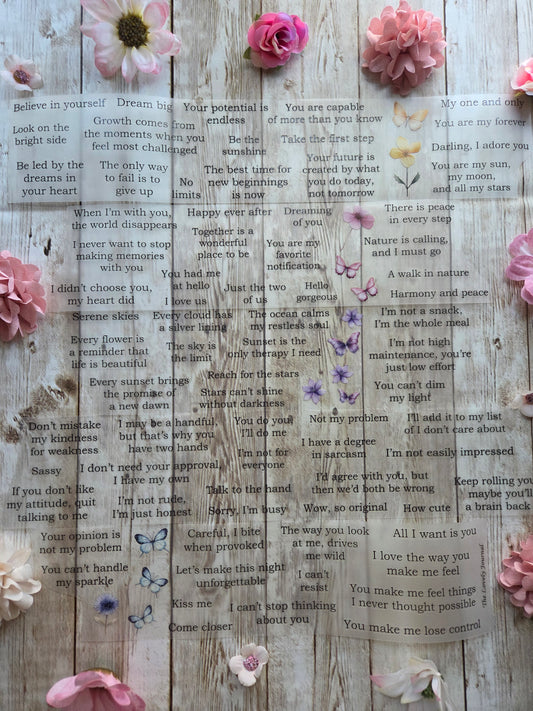 Believe in yourself
Dream big
Look on the
bright side
Growth comes from
the moments when you
feel most challenged
Be led by the
dreams in
your heart
The only way
to fail is to
give up
Your potential is
endless
You are capable
of more than you know
Be the
sunshine
Take the first step
No
limits
The best time for
new beginnings
is now
Your future is
created by what
you do today,
not tomorrow
My one and only
You are my forever
Darling, I adore you
You are my sun,
my moon,
and all my stars
When I'm with you,
the world disappears
Happy ever after
Dreaming
of you
There is peace
in every step
I never want to stop
making memories
with you
Together is a
wonderful
place to be
You are my
favorite
notification
Nature is calling,
and I must go
You had me
at hello
A walk in nature
I didn't choose you,
my heart did
I love us
Just the two
of us
Hello
gorgeous
Harmony and peace
Serene skies
Every cloud has
a silver lining
The ocean calms
my restless soul
I'm not a snack,
I'm the whole meal
Every flower is
a reminder that
life is beautiful
The sky is
the limit
Sunset is the
only therapy I need
I'm not high
maintenance, you're
just low effort
Reach for the stars
Every sunset brings
the promise of
a new dawn
Stars can't shine
without darkness
You can't dim
my light
Don't mistake
my kindness
for weakness
I may be a handful,
but that's why you
have two hands
You do you,
I'll do me
Not my problem
I'll add it to my list
of I don't care about
I have a degree
in sarcasm
I'm not for
everyone
I'm not easily impressed
Sassy
I don't need your approval,
I have my own
I'd agree with you, but
then we'd both be wrong
Keep rolling you
maybe you'll
a brain back
If you don't like
my attitude, quit
talking to me
I'm not rude,
I'm just honest
Talk to the hand
Sorry, I'm busy
Wow, so original
How cute
Your opinion is
not my problem
Careful, I bite
when provoked
The way you look
at me, drives
me wild
All I want is you
I love the way you
make me feel
You can't handle
my sparkle
Let's make this night
unforgettable
I can't
resist
You make me feel things
I never thought possible
Kiss me
I can't stop thinking
about you
Come closer
You make me lose control
The Lovely Journal